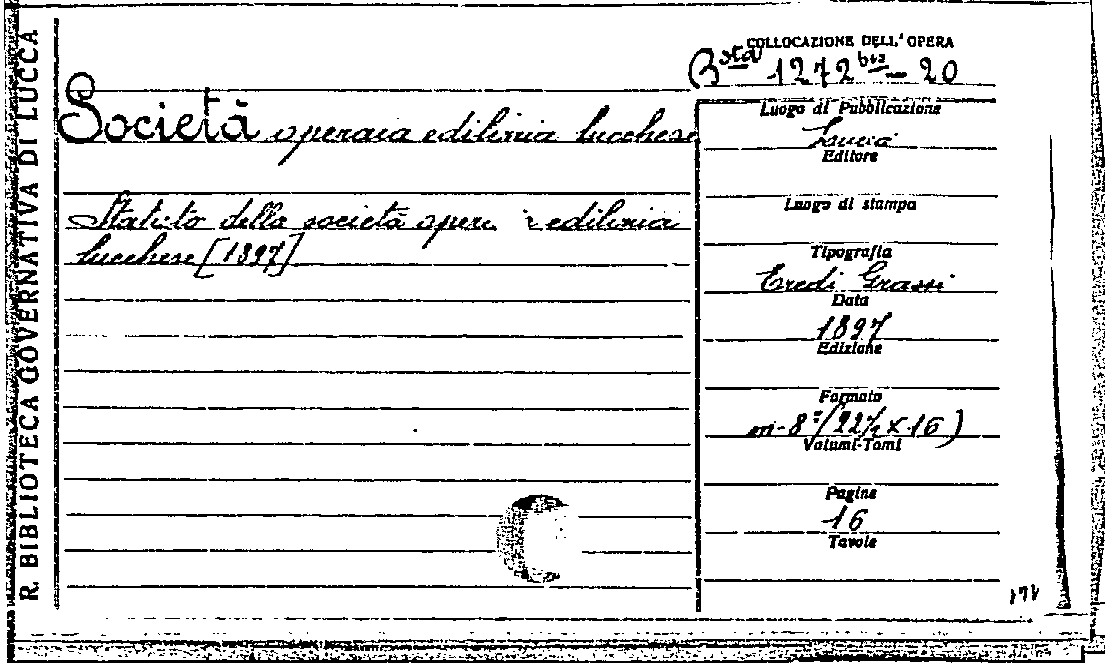 R. BIBLIOTECA GOVERNATIVA DI LUCCA
COLLOCAZIONE DELL'OPERA
Bsta 1272 bis - 20
Società operaia edilizia lucchese
Statuto della società opera edilizia
lucchese [1897]
Luogo di Pubblicazione
Lucca
Editore
Luogo di stampa
Tipografia
Eredi Grassi
Data
1897
Edizione
Formato
in-8° (22½ x 16)
Volumi-Tomi
Pagine
16
Tavole
171